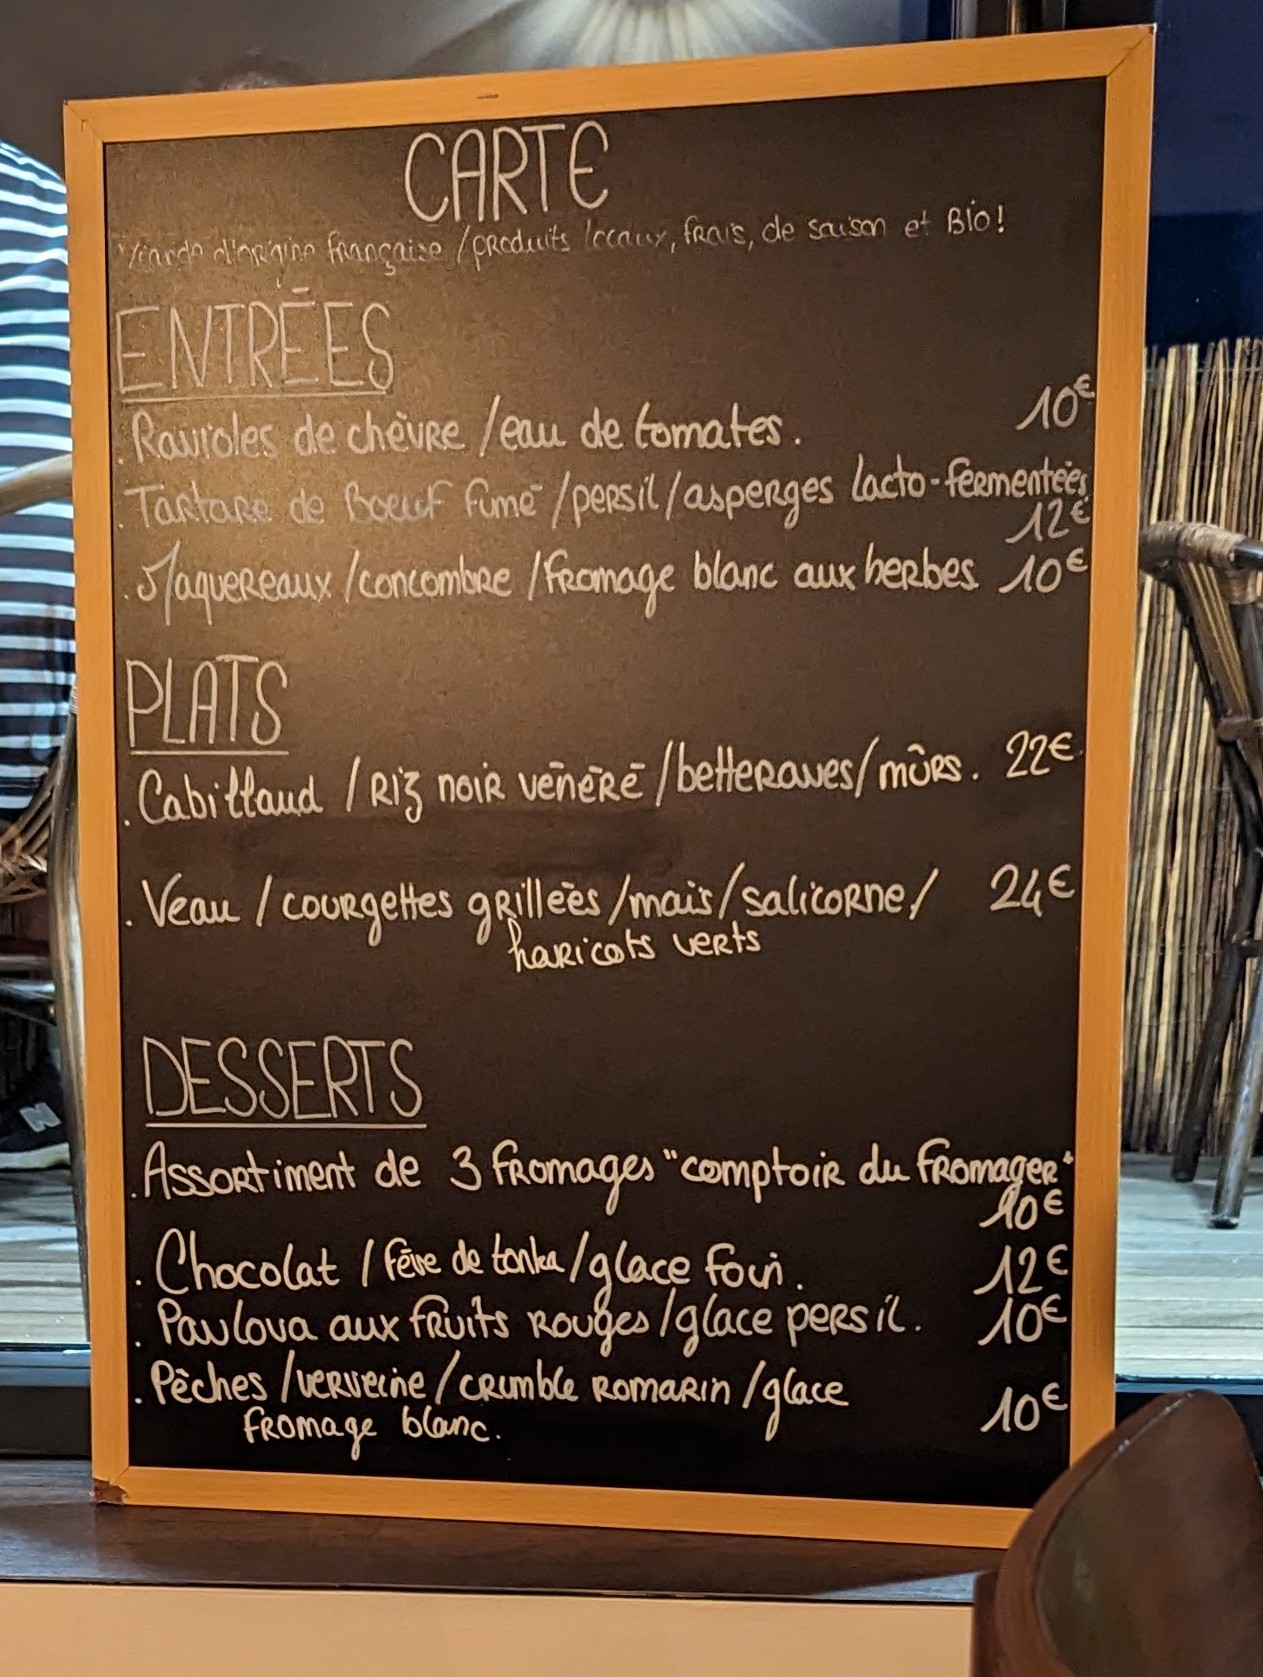 CARTE
Viande d'origine française / produits locaux, frais, de saison et Bio!
ENTRÉES
. Ravioles de chèvre / eau de tomates. 10€
. Tartare de Boeuf fumé / persil / asperges lacto-fermentées
12€
. Maquereaux / concombre / fromage blanc aux herbes 10€
PLATS
. Cabillaud / Riz noir vénéré / betteraves / mûrs. 22€
. Veau / courgettes grillées / maïs / salicorne / 24€
haricots verts
DESSERTS
. Assortiment de 3 fromages "comptoir du fromager"
10€
. Chocolat / fève de tonka / glace foin. 12€
. Pavlova aux fruits rouges / glace persil. 10€
. Pêches / verveine / crumble romarin / glace
fromage blanc. 10€
N